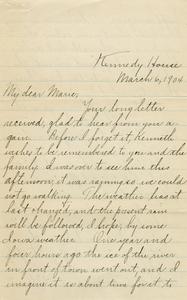 Kennedy House
March 6, 1904
My dear Marie,
Your long letter
received, glad to hear from you a
gain. Before I forget it Kenneth
wishes to be remembered to you and the
family. I was over to see him this
afternoon, it was raining, so we could
not go walking. The weather has at
last changed, and the present rain
will be followed, I hope, by some
down weather. One year and
four hours ago the ice of the river
in front of town went out, and I
imagine it is about time for it to